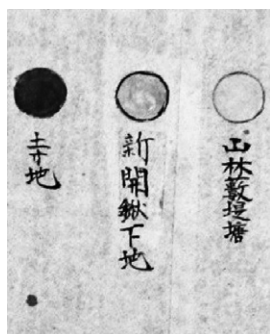 山林藪堤塘
新開獄下地
寺地